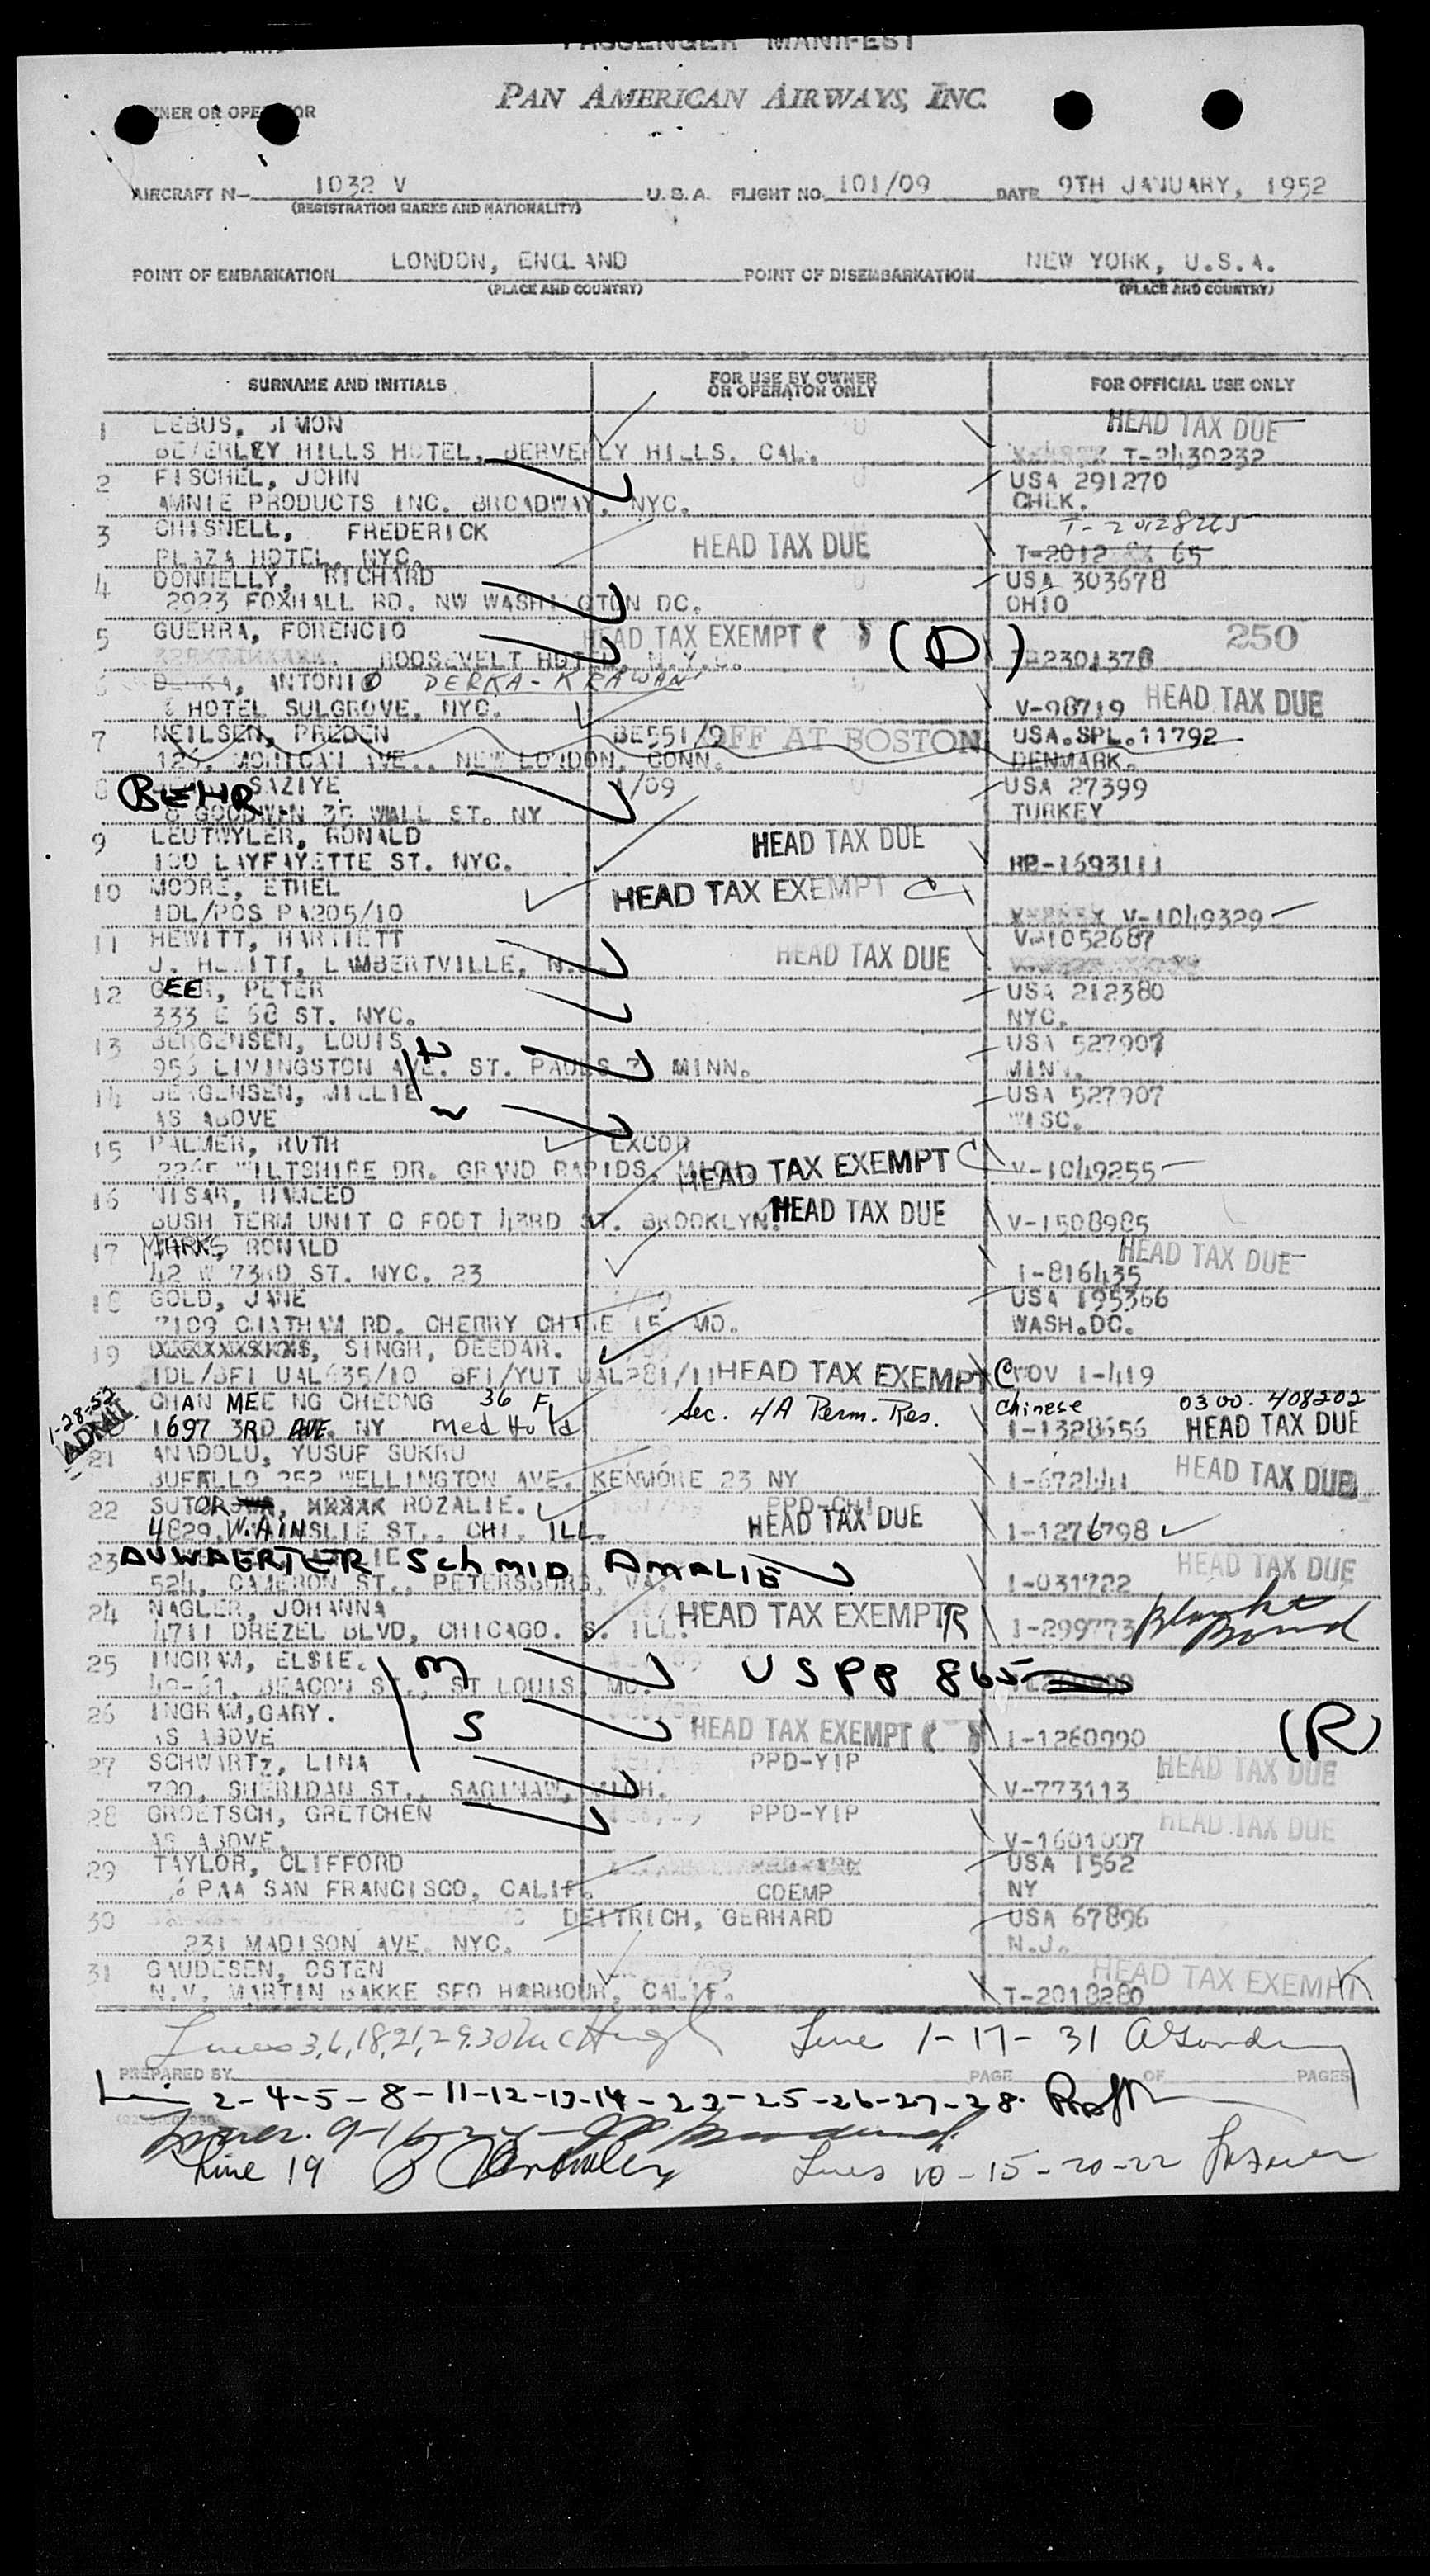 PASSENGER MANIFEST
OWNER OR OPERATOR PAN AMERICAN AIRWAYS, INC.
AIRCRAFT N- 1032 V U.S.A. FLIGHT NO. 101/09 DATE 9TH JANUARY, 1952
(REGISTRATION MARKS AND NATIONALITY)
POINT OF EMBARKATION LONDON, ENGLAND POINT OF DISEMBARKATION NEW YORK, U.S.A.
(PLACE AND COUNTRY) (PLACE AND COUNTRY)
SURNAME AND INITIALS FOR USE BY OWNER OR OPERATOR ONLY FOR OFFICIAL USE ONLY
1 LEBUS, SIMON HEAD TAX DUE
BEVERLEY HILLS HOTEL, BERVERLY HILLS, CAL. T-2430232
2 FISCHEL, JOHN USA 291270
AMNIE PRODUCTS INC. BROADWAY, NYC. CHEK.
3 CHISNELL, FREDERICK HEAD TAX DUE T-20128265
PLAZA HOTEL, NYC. T-2012 65
4 DONNELLY, RICHARD USA 303678
2923 FOXHALL RD. NW WASHINGTON DC. OHIO
5 GUERRA, FORENCIO HEAD TAX EXEMPT ( ) (D) 250
ROOSEVELT HOTEL, N.Y.C. 2301378
6 ANTONIO DERKA-KRAWAN
HOTEL SULGROVE, NYC. V-98719 HEAD TAX DUE
7 NEILSEN, PREDEN BE551/9 OFF AT BOSTON USA.SPL.11792
MOHICAN AVE., NEW LONDON, CONN. DENMARK.
8 BEHR SAZIYE 1/09 USA 27399
GOODWIN 35 WALL ST. NY TURKEY
9 LEUTWYLER, RONALD HEAD TAX DUE
100 LAYFAYETTE ST. NYC. RP-1693111
10 MOORE, ETHEL HEAD TAX EXEMPT C
IDL/POS PA205/10 V-1049329
11 HEWITT, HARTLETT HEAD TAX DUE V-1052687
J. HEWITT, LAMBERTVILLE, N.J.
12 GEER, PETER USA 212380
333 E 68 ST. NYC. NYC.
13 BERGENSEN, LOUIS H USA 527907
956 LIVINGSTON AVE. ST. PAULS 7, MINN. MINN.
14 BERGENSEN, MILLIE W USA 527907
AS ABOVE WISC.
15 PALMER, RUTH EXCOR
WILTSHIRE DR. GRAND RAPIDS, MICH. HEAD TAX EXEMPT C V-1049255
16 NISAR, HAMEED HEAD TAX DUE
BUSH TERM UNIT C FOOT 43RD ST. BROOKLYN. V-1508985
17 MARKS, RONALD HEAD TAX DUE
42 W 73RD ST. NYC. 23 I-816435
18 GOLD, JANE 1/09 USA 195366
7109 CHATHAM RD. CHERRY CHASE 15, MD. WASH.DC.
19 SINGH, DEEDAR.
IDL/BFI UAL635/10 BFI/YUT UAL281/11 HEAD TAX EXEMPT C PROV 1-419
1-28-52 ADMIT CHAN MEE NG CHEONG 36 F Sec. 4A Perm. Res. Chinese 0300.408202
1697 3RD AVE. NY Med Hold I-1328656 HEAD TAX DUE
21 ANADOLU, YUSUF SUKRU
BUFALLO 252 WELLINGTON AVE. KENMORE 23 NY I-672441 HEAD TAX DUE
22 SUTOR, ROZALIE. PPD-CHI
4829 W. AINSLIE ST., CHI. ILL. HEAD TAX DUE I-1276798
23 AUWAERTER SCHMID AMALIE HEAD TAX DUE
524, CAMERON ST., PETERSBURG, VA. I-031722
24 NAGLER, JOHANNA HEAD TAX EXEMPT R
4711 DREZEL BLVD, CHICAGO. S. ILL. I-299773 Blanket Bond
25 INGRAM, ELSIE. M USPP 865
BEACON ST., ST LOUIS, MO.
26 INGRAM, GARY. S HEAD TAX EXEMPT ( ) (R)
AS ABOVE I-1260990
27 SCHWARTZ, LINA PPD-YIP HEAD TAX DUE
700, SHERIDAN ST., SAGINAW, MICH. V-773113
28 GROETSCH, GRETCHEN PPD-YIP HEAD TAX DUE
AS ABOVE. V-1601007
29 TAYLOR, CLIFFORD USA 1562
% PAA SAN FRANCISCO, CALIF. COEMP NY
30 DEITRICH, GERHARD USA 67896
231 MADISON AVE. NYC. N.J.
31 GAUDESEN, OSTEN HEAD TAX EXEMPT
N.V. MARTIN BAKKE SFO HARBOUR, CALIF. T-2018280
Lines 3,6,18,21,29.30 McHugh Line 1-17-31
PREPARED BY PAGE OF PAGES
Line 2-4-5-8-11-12-13-14-23-25-26-27-28.
Lines 9-16-24
Line 19 Lines 10-15-20-22